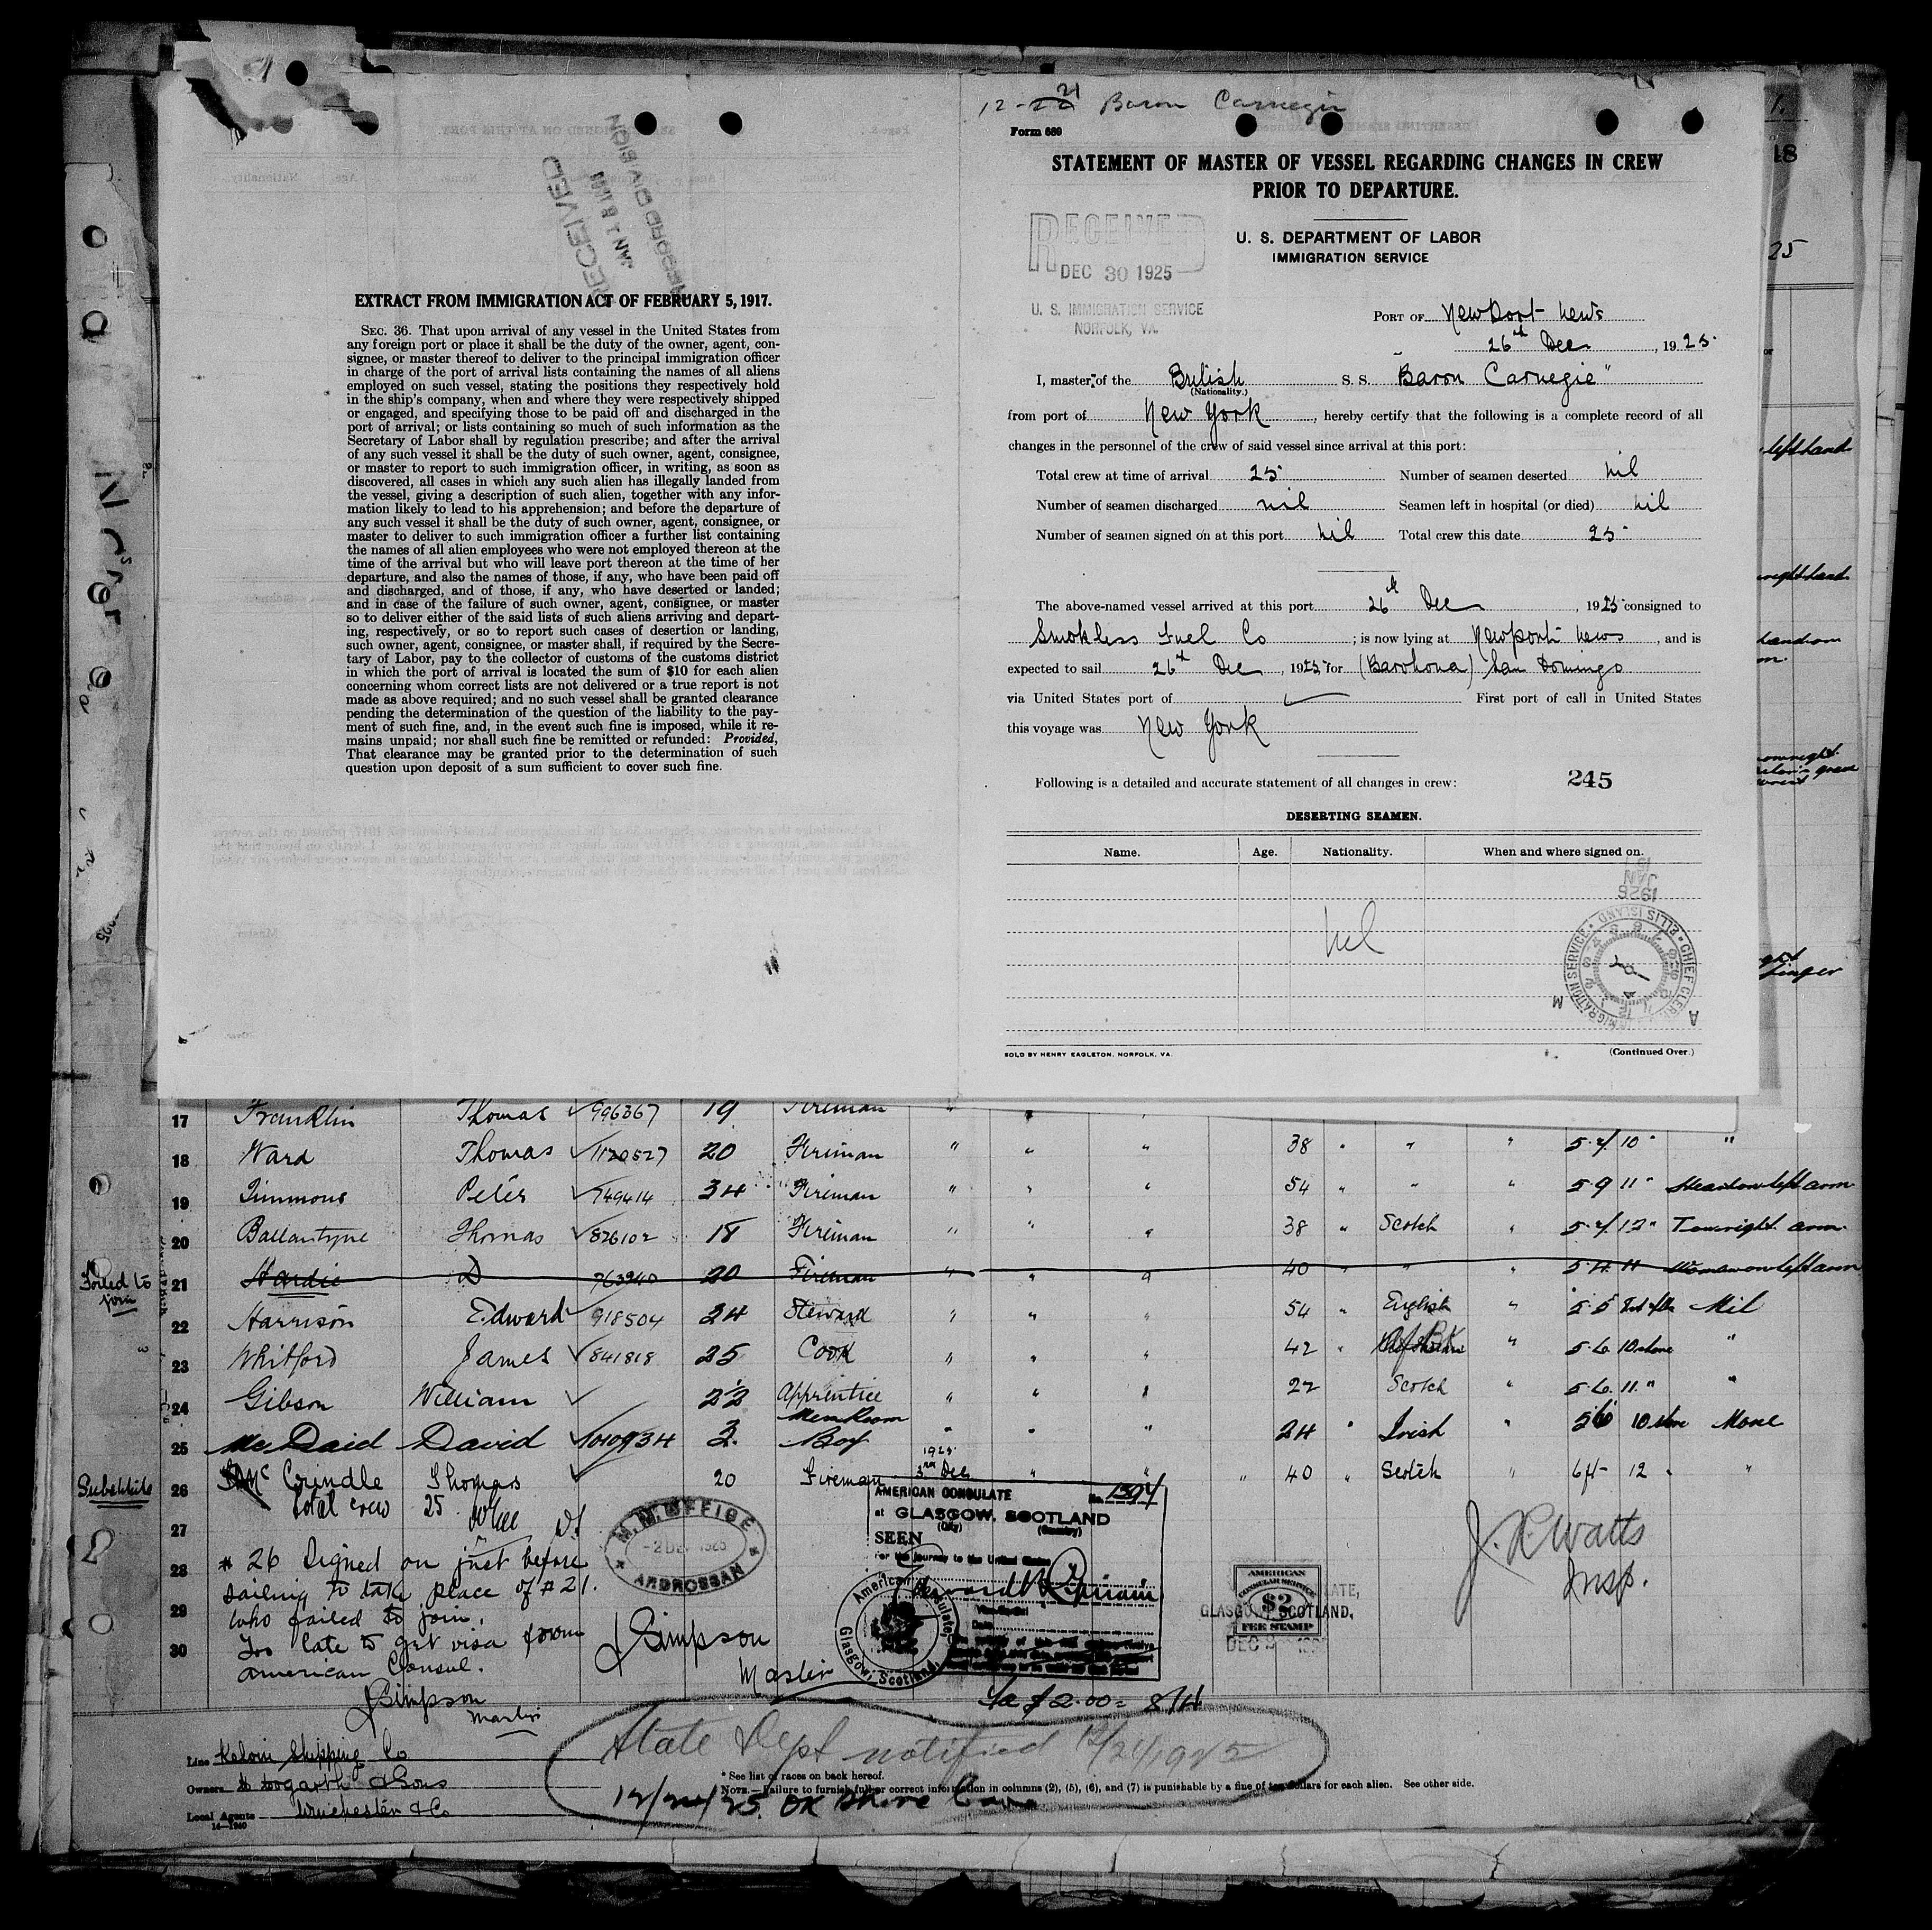 12-21 Baron Carnegie
Form 689
STATEMENT OF MASTER OF VESSEL REGARDING CHANGES IN CREW
PRIOR TO DEPARTURE.
U. S. DEPARTMENT OF LABOR
IMMIGRATION SERVICE
RECEIVED
DEC 30 1925
U. S. IMMIGRATION SERVICE
NORFOLK, VA.
PORT OF Newport News
26th Dec, 1925
I, master of the British S. S. "Baron Carnegie"
(Nationality.)
from port of New York, hereby certify that the following is a complete record of all
changes in the personnel of the crew of said vessel since arrival at this port:
Total crew at time of arrival 25 Number of seamen deserted nil
Number of seamen discharged nil Seamen left in hospital (or died) nil
Number of seamen signed on at this port nil Total crew this date 25
The above-named vessel arrived at this port 26th Dec, 1925 consigned to
Smokless Fuel Co; is now lying at Newport News, and is
expected to sail 26th Dec, 1925 for (Barohona) San Domingo
via United States port of First port of call in United States
this voyage was New York
Following is a detailed and accurate statement of all changes in crew: 245
DESERTING SEAMEN.
Name. Age. Nationality. When and where signed on.
nil
JAN
1926
IMMIGRATION SERVICE ELLIS ISLAND CHIEF CLERK
A M
SOLD BY HENRY EAGLETON, NORFOLK, VA. (Continued Over.)
RECEIVED
EXTRACT FROM IMMIGRATION ACT OF FEBRUARY 5, 1917.
SEC. 36. That upon arrival of any vessel in the United States from
any foreign port or place it shall be the duty of the owner, agent, con-
signee, or master thereof to deliver to the principal immigration officer
in charge of the port of arrival lists containing the names of all aliens
employed on such vessel, stating the positions they respectively hold
in the ship's company, when and where they were respectively shipped
or engaged, and specifying those to be paid off and discharged in the
port of arrival; or lists containing so much of such information as the
Secretary of Labor shall by regulation prescribe; and after the arrival
of any such vessel it shall be the duty of such owner, agent, consignee,
or master to report to such immigration officer, in writing, as soon as
discovered, all cases in which any such alien has illegally landed from
the vessel, giving a description of such alien, together with any infor-
mation likely to lead to his apprehension; and before the departure of
any such vessel it shall be the duty of such owner, agent, consignee, or
master to deliver to such immigration officer a further list containing
the names of all alien employees who were not employed thereon at the
time of the arrival but who will leave port thereon at the time of her
departure, and also the names of those, if any, who have been paid off
and discharged, and of those, if any, who have deserted or landed;
and in case of the failure of such owner, agent, consignee, or master
so to deliver either of the said lists of such aliens arriving and depart-
ing, respectively, or so to report such cases of desertion or landing,
such owner, agent, consignee, or master shall, if required by the Secre-
tary of Labor, pay to the collector of customs of the customs district
in which the port of arrival is located the sum of $10 for each alien
concerning whom correct lists are not delivered or a true report is not
made as above required; and no such vessel shall be granted clearance
pending the determination of the question of the liability to the pay-
ment of such fine, and, in the event such fine is imposed, while it re-
mains unpaid; nor shall such fine be remitted or refunded: Provided,
That clearance may be granted prior to the determination of such
question upon deposit of a sum sufficient to cover such fine.
17 Franklin Thomas 996367 19 Fireman
18 Ward Thomas 1120527 20 Fireman " " " 38 " " " 5.7 10 "
19 Timmons Peter 749414 34 Fireman " " " 54 " " " 5.9 11 left arm
20 Ballantyne Thomas 826102 18 Fireman " " " 38 " Scotch " 5.7 12 right arm
Failed to join
21 Hardie D 763940 20 Fireman " " " 40 " " " 5.4 11 Woman on left arm
22 Harrison Edward 918504 24 Steward " " " 54 " English " 5.5 Nil
23 Whitford James 841818 25 Cook " " " 42 " " 5.6 10 stone "
24 Gibson William 22 Apprentice " " " 22 " Scotch " 5.6 11 " "
25 McDaid David 1010934 3 Mess Room Boy " " " 24 " Irish " 5.6 10 stone None
Substitute
26 McCrindle Thomas 20 Fireman 1925 3rd Dec " " " 40 " Scotch " 6ft 12 "
Total crew 25
27
28
29
30
# 26 Signed on just before
sailing to take place of # 21.
who failed to join.
Too late to get visa from
American Consul.
J Simpson
Master
M. M. OFFICE
2 DEC 1925
ARDROSSAN
J Simpson
Master
AMERICAN CONSULATE No. 1394
at GLASGOW, SCOTLAND
(City) (Country)
SEEN
For the journey to the United States
American Consulate, Glasgow, Scotland
AMERICAN
CONSULAR SERVICE
$2
FEE STAMP
GLASGOW, SCOTLAND.
J. R. Watts
Insp.
State Dept notified 12/21/1925
Line Kelvin Shipping Co
Owners H Hogarth & Sons
Local Agents Winchester & Co
14—1240
* See list of races on back hereof.
NOTE.—Failure to furnish full or correct information in columns (2), (5), (6), and (7) is punishable by a fine of ten dollars for each alien. See other side.